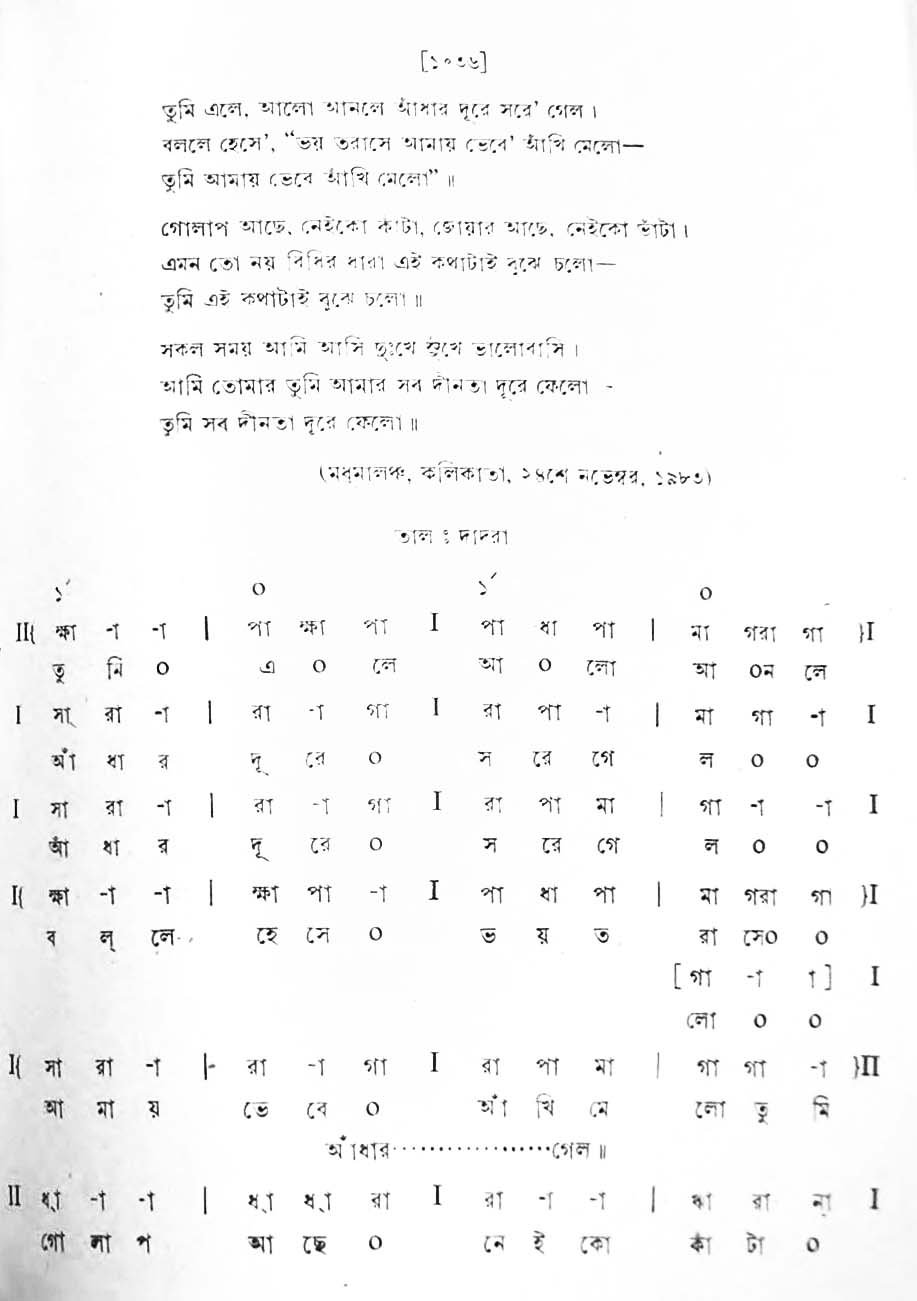 [১০৩৬]
তুমি এলে, আলো আনলে আঁধার দূরে সরে' গেল।
বললে হেসে', “ভয় তরাসে আমায় ভেবে' আঁখি মেলো—
তুমি আমায় ভেবে আঁখি মেলো”॥
গোলাপ আছে, নেইকো কাঁটা, জোয়ার আছে, নেইকো ভাঁটা।
এমন তো নয় বিধির ধারা এই কথাটাই বুঝে চলো—
তুমি এই কথাটাই বুঝে চলো॥
সকল সময় আমি আসি দুঃখে সুখে ভালোবাসি।
আমি তোমার তুমি আমার সব দীনতা দূরে ফেলো -
তুমি সব দীনতা দূরে ফেলো॥
(মধুমালঞ্চ, কলিকাতা, ২৪শে নভেম্বর, ১৯৮৩)
তাল ঃ দাদরা
১´ ০ ১´ ০
II{ ক্ষা -া -া | পা ক্ষা পা I পা ধা পা | মা গরা গা }I
তু মি ০ এ ০ লে আ ০ লো আ ০ন লে
I সা্ রা -া | রা -া গা I রা পা -া | মা গা -া I
আঁ ধা র দূ রে ০ স রে গে ল ০ ০
I সা রা -া | রা -া গা I রা পা মা | গা -া -া I
আঁ ধা র দূ রে ০ স রে গে ল ০ ০
I{ ক্ষা -া -া | ক্ষা পা -া I পা ধা পা | মা গরা গা }I
ব ল্ লে হে সে ০ ভ য় ত রা সে০ ০
[গা -া া] I
লো ০ ০
I{ সা রা -া | রা -া গা I রা পা মা | গা গা -া }II
আ মা য় ভে বে ০ আঁ খি মে লো তু মি
আঁধার··················গেল॥
II ধা্ -া -া | ধা্ ধা্ রা I রা -া -া | রা না্ I
গো লা প আ ছে ০ নে ই কো কাঁ টা ০